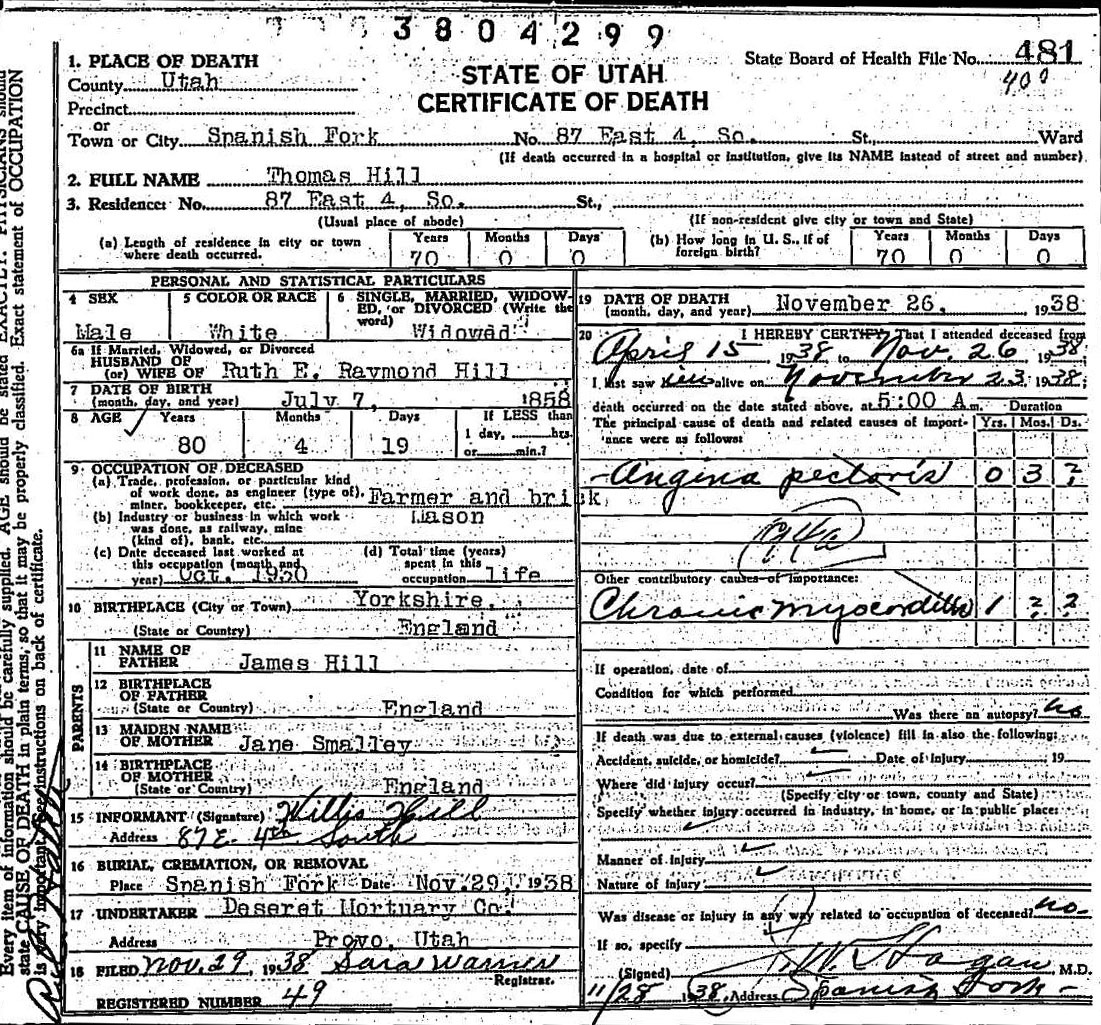 3804299
1. PLACE OF DEATH
State Board of Health File No. 481
400
County Utah
STATE OF UTAH
CERTIFICATE OF DEATH
Precinct
or
Town or City Spanish Fork No. 87 East 4, So. St., Ward
(If death occurred in a hospital or institution, give its NAME instead of street and number)
2. FULL NAME Thomas Hill
3. Residence: No. 87 East 4, So. St.,
(Usual place of abode) (If non-resident give city or town and State)
(a) Length of residence in city or town where death occurred. Years 70 Months 0 Days 0
(b) How long in U. S., if of foreign birth? Years 70 Months 0 Days 0
PERSONAL AND STATISTICAL PARTICULARS
4 SEX Male
5 COLOR OR RACE White
6 SINGLE, MARRIED, WIDOWED, or DIVORCED (Write the word) Widowed
6a If Married, Widowed, or Divorced
HUSBAND OF
(or) WIFE OF Ruth E. Raymond Hill
7 DATE OF BIRTH
(month, day, and year) July 7, 1858
8 AGE Years 80 Months 4 Days 19 If LESS than 1 day, hrs. or min.?
9 OCCUPATION OF DECEASED
(a) Trade, profession, or particular kind
of work done, as engineer (type of),
miner, bookkeeper, etc. Farmer and brick
(b) Industry or business in which work Mason
was done, as railway, mine
(kind of), bank, etc.
(c) Date deceased last worked at
this occupation (month and
year) Oct. 1930
(d) Total time (years)
spent in this
occupation life
10 BIRTHPLACE (City or Town) Yorkshire,
(State or Country) England
PARENTS
11 NAME OF
FATHER James Hill
12 BIRTHPLACE
OF FATHER
(State or Country) England
13 MAIDEN NAME
OF MOTHER Jane Smalley
14 BIRTHPLACE
OF MOTHER
(State or Country) England
15 INFORMANT (Signature) Willis Hill
Address 87 E. 4th South
16 BURIAL, CREMATION, OR REMOVAL
Place Spanish Fork Date Nov 29, 1938
17 UNDERTAKER Deseret Mortuary Co.
Address Provo, Utah
18 FILED Nov. 29, 1938 Sara Warner
Registrar.
REGISTERED NUMBER 49
19 DATE OF DEATH
(month, day, and year) November 26, 1938
20 I HEREBY CERTIFY That I attended deceased from
April 15 1938 to Nov. 26 1938;
I last saw him alive on November 23 1938;
death occurred on the date stated above, at 5:00 A m. Duration
The principal cause of death and related causes of importance were as follows: Yrs. Mos. Ds.
Angina pectoris 0 3 ?
Other contributory causes of importance:
Chronic myocarditis 1 ? ?
If operation, date of
Condition for which performed
Was there an autopsy? no
If death was due to external causes (violence) fill in also the following:
Accident, suicide, or homicide? Date of injury 19
Where did injury occur?
(Specify city or town, county and State)
Specify whether injury occurred in industry, in home, or in public place:
Manner of injury
Nature of injury
Was disease or injury in any way related to occupation of deceased? no
If so, specify
(Signed) Hagan, M.D.
11/28 1938, Address Spanish Fork
Every item of information should be carefully supplied. AGE should be stated EXACTLY. PHYSICIANS should
state CAUSE OF DEATH in plain terms, so that it may be properly classified. Exact statement of OCCUPATION
is very important. See instructions on back of certificate.